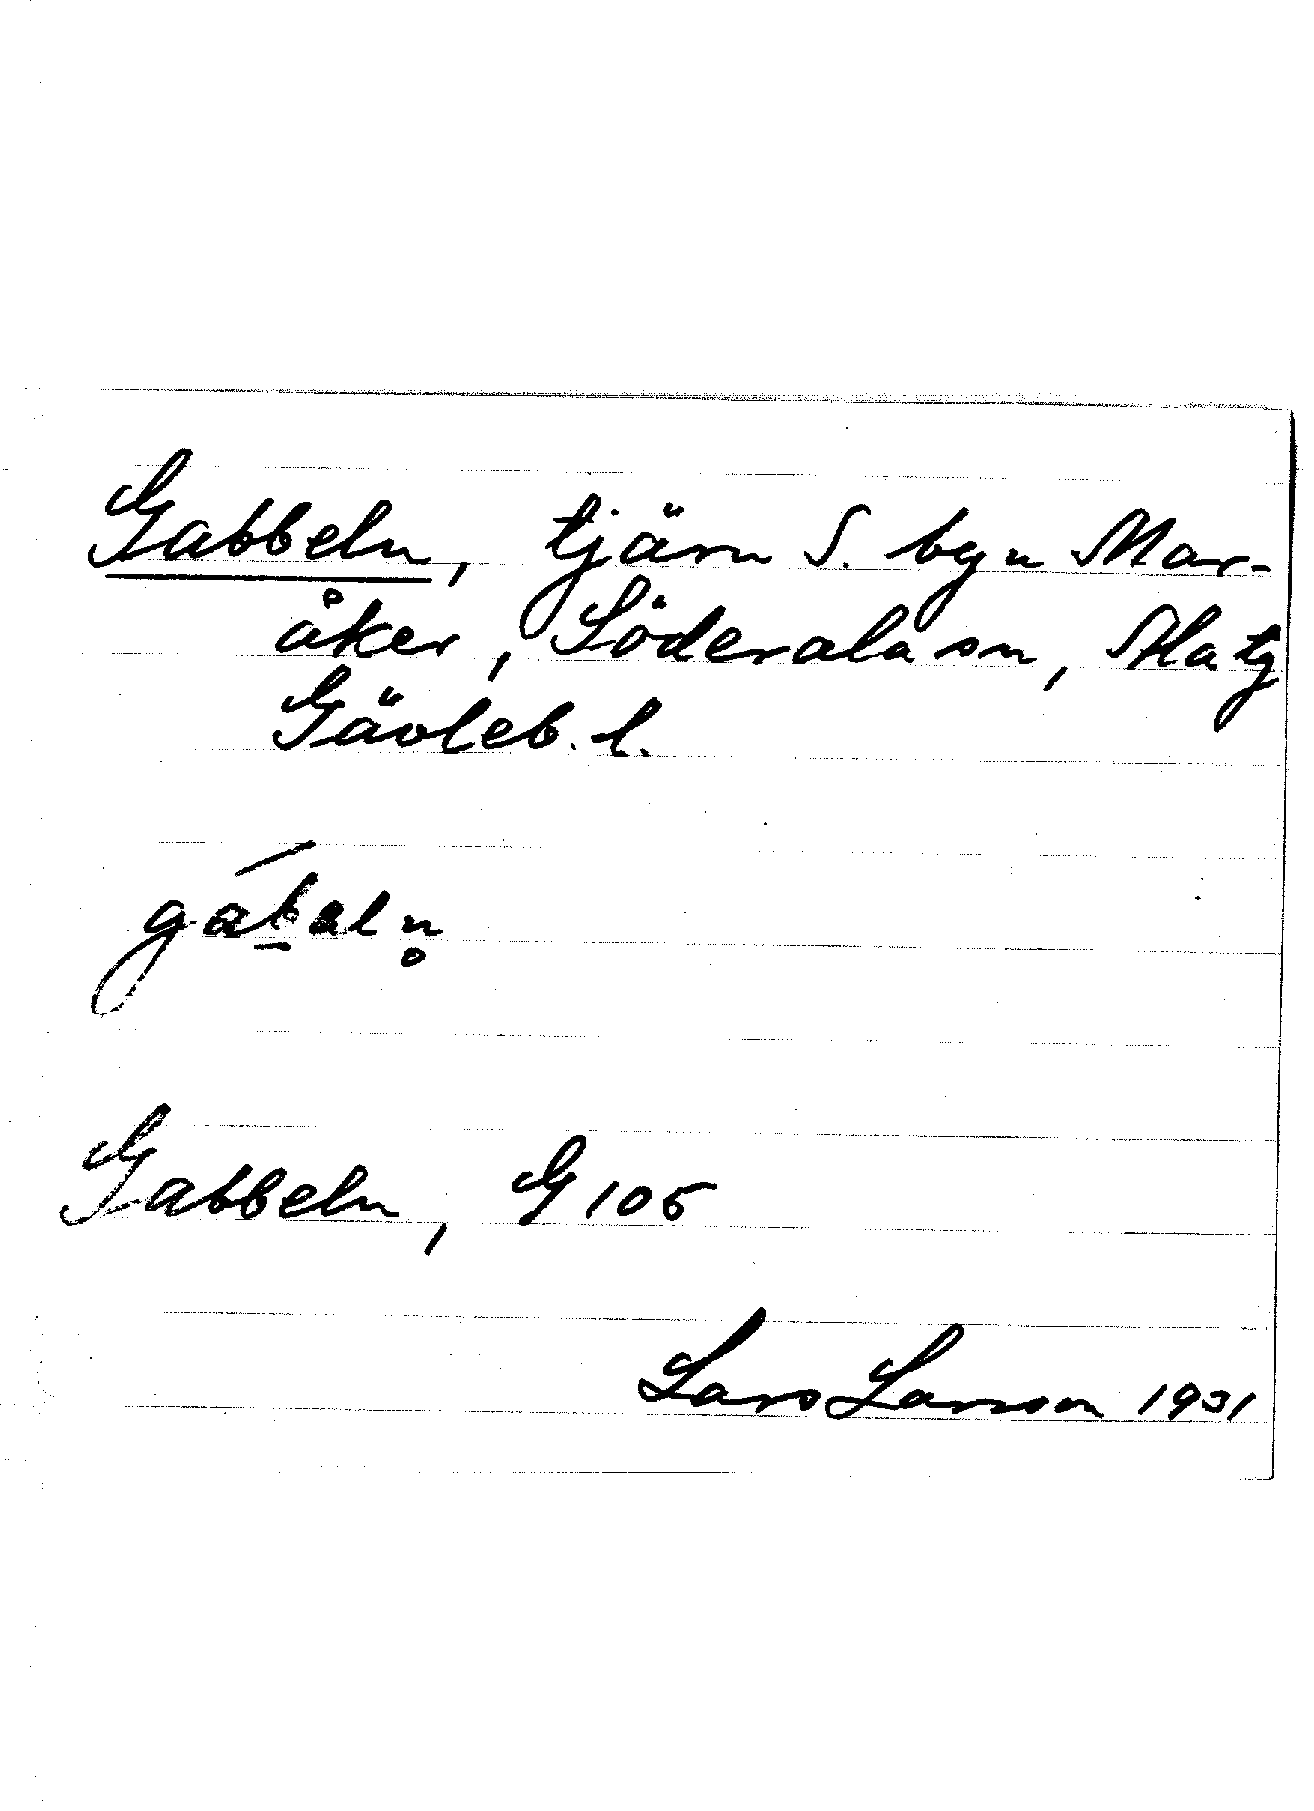 Gabbeln, tjärn S. byn Mar-
åker, Söderala sn, Ala tg
Gävleb. l.
gábaln̥
Gabbeln, G 105
Lars Larsson 1931